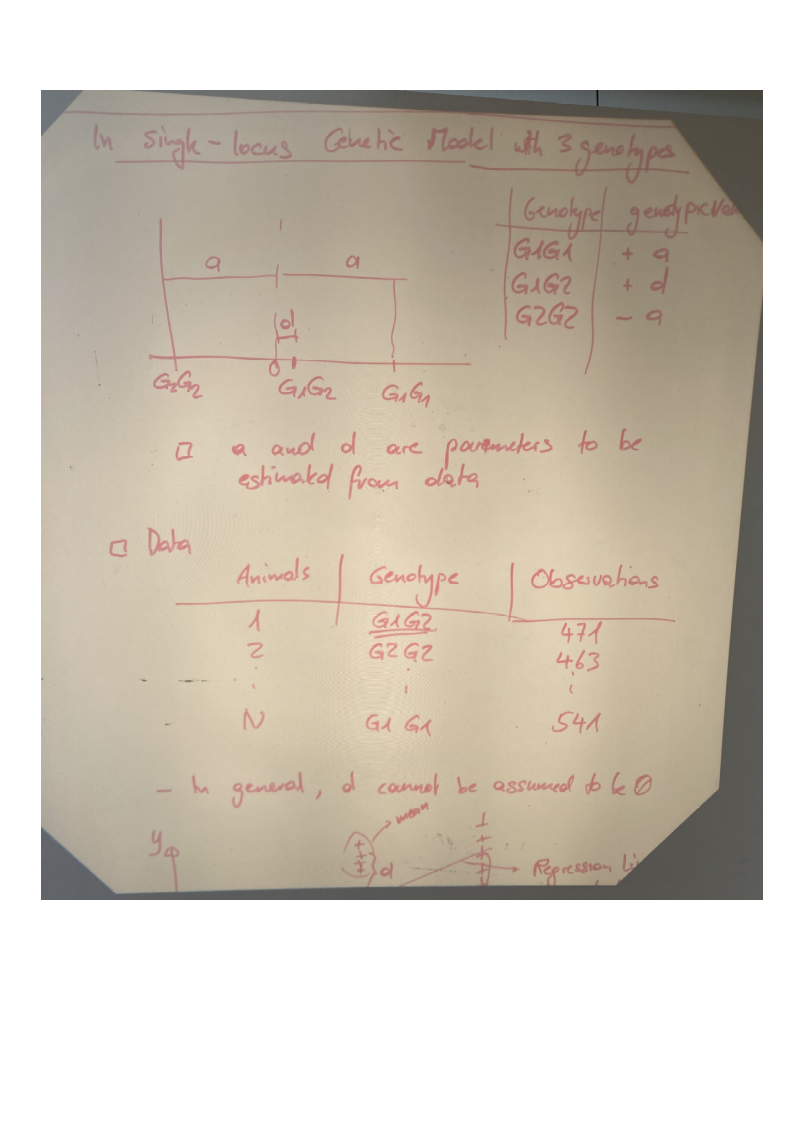 In Single-locus Genetic Model with 3 genotypes
Genotype
G1G1 + a
G1G2 + d
G2G2 - a
a a
d
0
G2G2 G1G2 G1G1
□ a and d are parameters to be
estimated from data
□ Data
Animals Genotype Observations
1 G1G2 471
2 G2G2 463
⋮ ⋮ ⋮
N G1G1 541
- In general, d cannot be assumed to be 0
mean
y
d
Regression